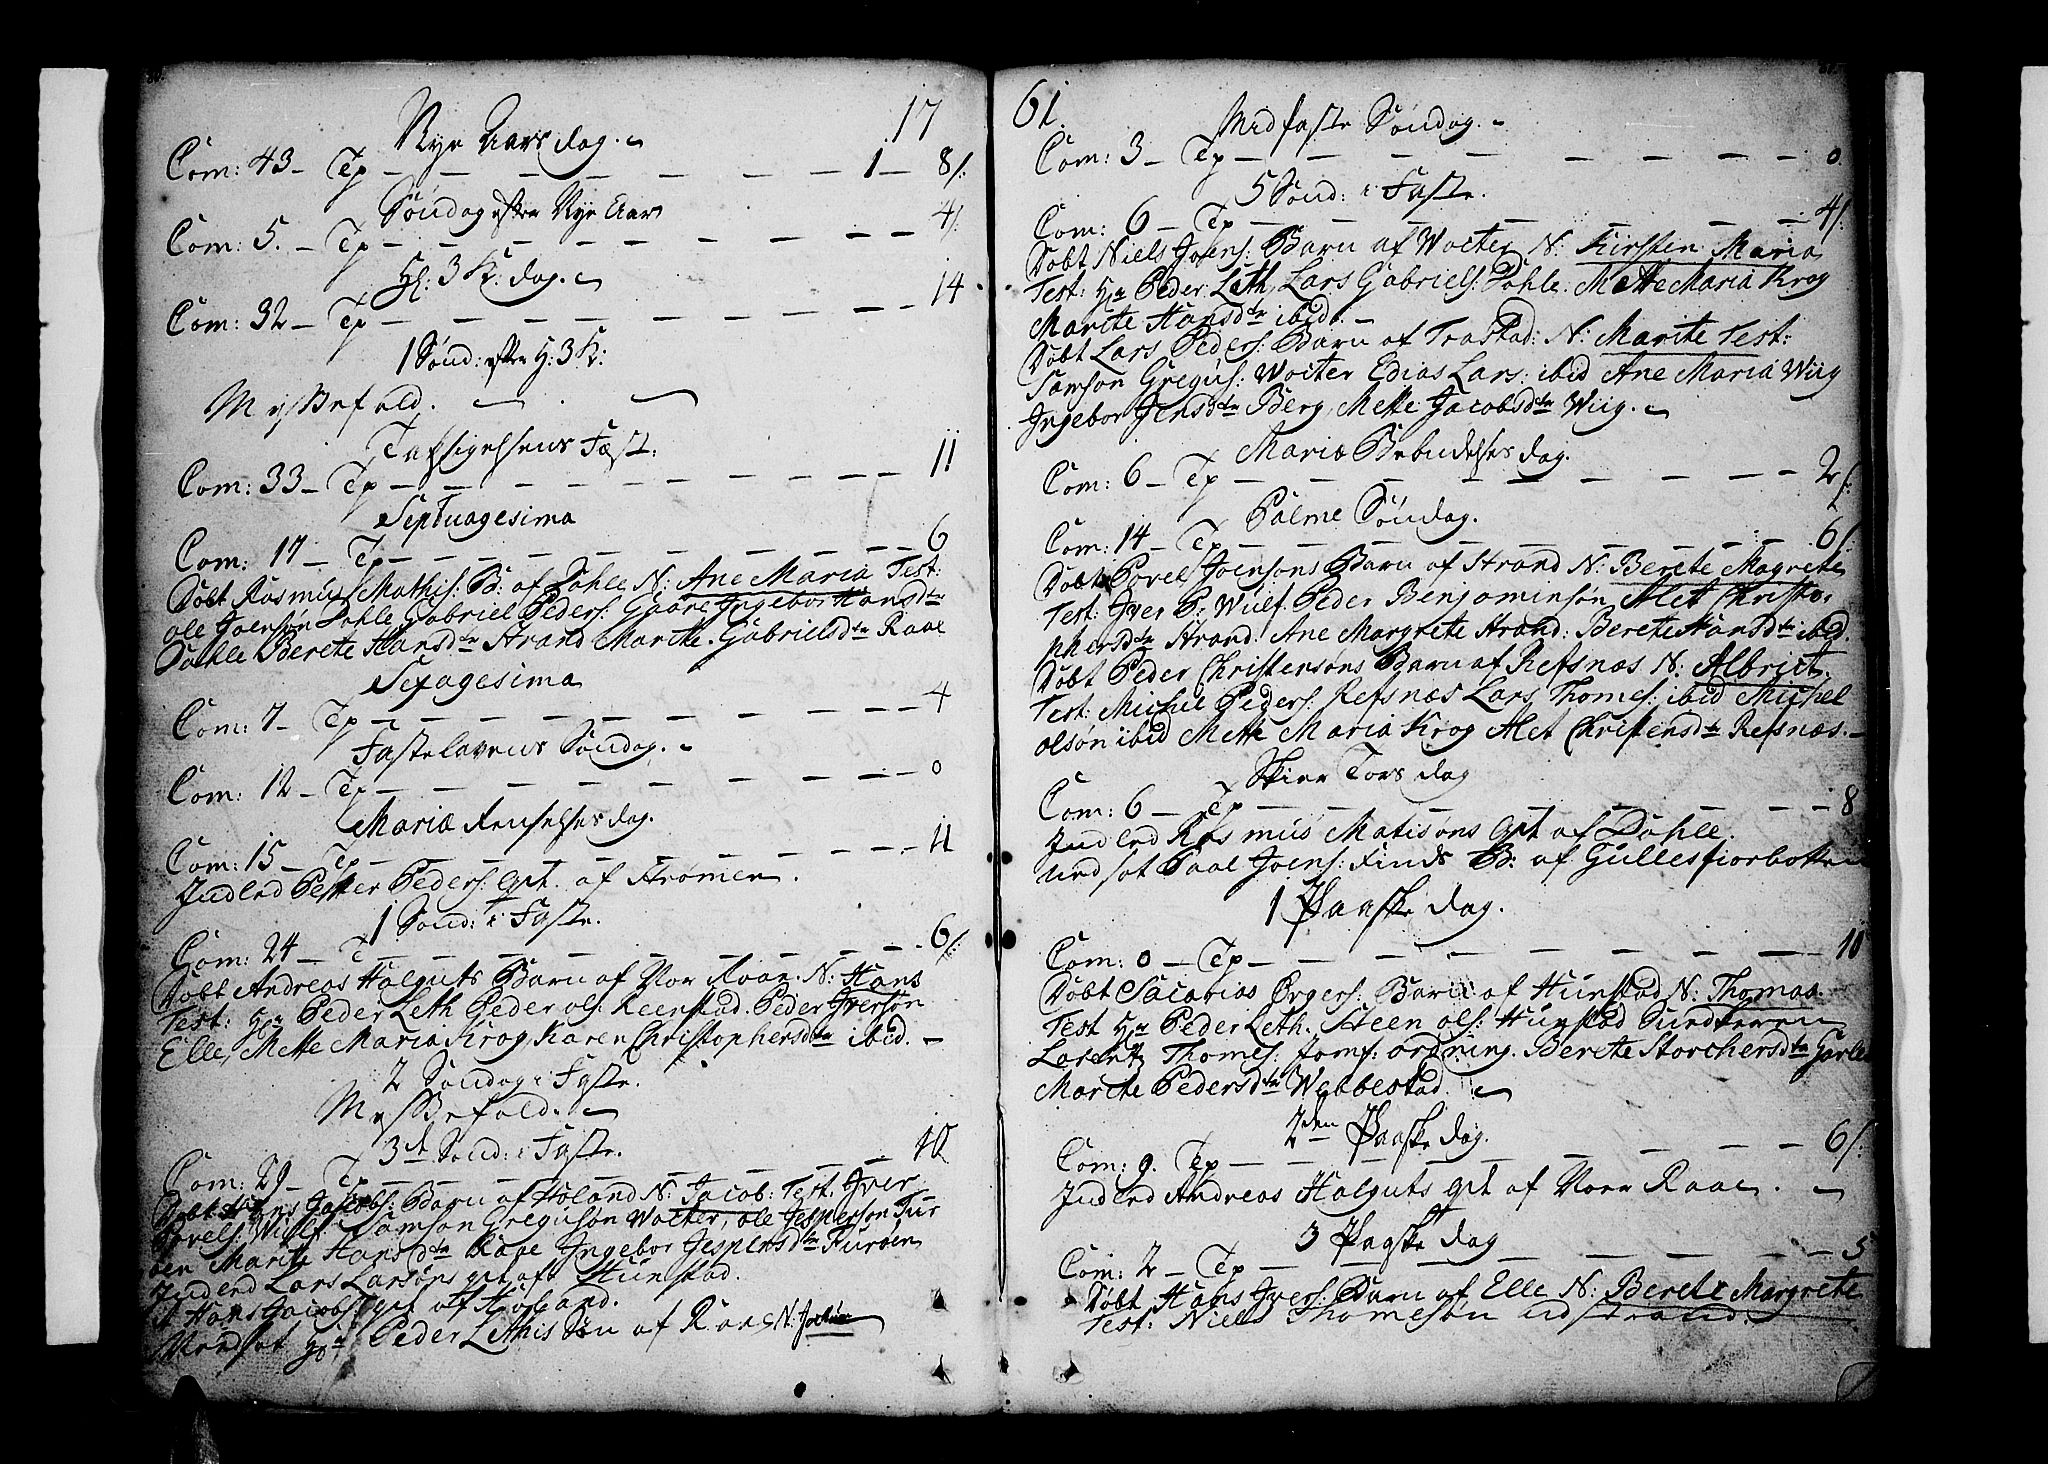 17
Nye Aars dag.
Com: 43 – Tp – – – 1 – 8/:
Søndag efter Nye Aar
Com: 5. – Tp – – – 4/:
H: 3 K: dag.
Com: 32 – Tp – – – 14
1 Sønd: efter H: 3 K:
Messefald.
Taksigelsens Fæst:
Com: 33 – Tp – – – 11
Septuagesima
Com: 17 – Tp – – – 6
Døbt Rasmus Mathis: B: af Dohle N: Ane Maria Test:
ole Joensøn Dohle Gabriel Peders: Gaare Ingebor Hansdtr
Dohle Berete Hansdtr Strand Marite Gabrielsdtr Raae
Sexagesima
Com: 7 – Tp – – – 4
Fastelavens Søndag.
Com: 12 – Tp – – – 0
Mariæ Renselses dag.
Com: 15 – Tp – – – 11
Indled Petter Peders: qvt. af Strømen.
1 Sønd: i Faste.
Com: 24 – T – – – 6/:
Døbt Andreas Halguts Barn af Vor Raae N: Hans
Test: Hr Peder Leth Peder ols: Reenstad. Peder Iversøn
Elle, Mette Maria Krog Karen Christophersdtr ibid. –
2 Søndag i Faste.
Messefald.
3de Sønd: i Faste.
Com: 29 – Tp – – – 10
Døbt Hans Jacobs: Barn af Høland N: Jacob: Test: Iver
Povels: Wulf: Samson Gregusøn Wolter, ole Jespersøn Fur
øen Marite Hansdtr Raae Ingebor Jespersdtr Furøen
Indled Lars Larsøns qvt aft Hunstad.
it Hans Jacobs: qvt af Høland.
Undsat Hr Peder Lethis Søn af Raae N:
61.
Midfaste Søndag.
Com: 3 – Tp – – – 0
5 Sønd: i Faste.
Com: 6 – Tp – – – 4/:
Døbt Niels Joens: Barn af Wolter N: Kirsten Maria
Test: Hr Peder Leth, Lars Gabriels: Dohle. Mette Maria Krog
Marite Hansdtr ibid. –
Døbt Lars Peders: Barn af Trastad: N: Marite Test:
Samson Gregus: Wolter Edias Lars: ibid Ane Maria Wiig
Ingebor Jensdtr Berg, Mette Jacobsdtr Wiig.
Mariæ Bebudelses dag.
Com: 6 – Tp – – – 2/:
Palme Søndag.
Com: 14 – Tp – – – 6/:
Døbt Povel Joensøns Barn af Strand N: Berete Magrete
Test: Iver P: Wulf. Peder Benjaminsøn Alet Christo,
phersdtr Strand. Ane Margrete Strand: Berete Hansdtr ibid.
Døbt Peder Christensøns Barn af Refsnæs N: Albrict
Test: Michel Peders: Refsnæs Lars Thomes: ibid Michel
olsøn ibid Mette Maria Krog Alet Christensdtr Refsnæs. –
Skier Tors dag
Com: 6 – Tp – – – 8
Indled Rasmus Matisøns qvt af Dohle.
Undsat Paal Joens: Finds B: af Gullesfiorbotten
1 Paaske dag.
Com: 0 – Tp – – – 10
Døbt Sacarias Ørgers: Barn af Hunstad N: Thomas.
Test Hr Peder Leth. Steen ols: Hunstad Sundteren
Larents Thomes: Jomf: ordning. Berete Storchersdtr
Marete Pedersdtr Webbestad.
2den Paaske dag.
Com: 9. Tp – – – 6/:
Indled Andreas Halguts qvt af Vorr Raae.
3 Paaske dag
Com: 2 – Tp – – – 5
Døbt Hans Ivers: Barn af Elle N: Berete Margrete
Test: Niels Thomesøn udstrand.